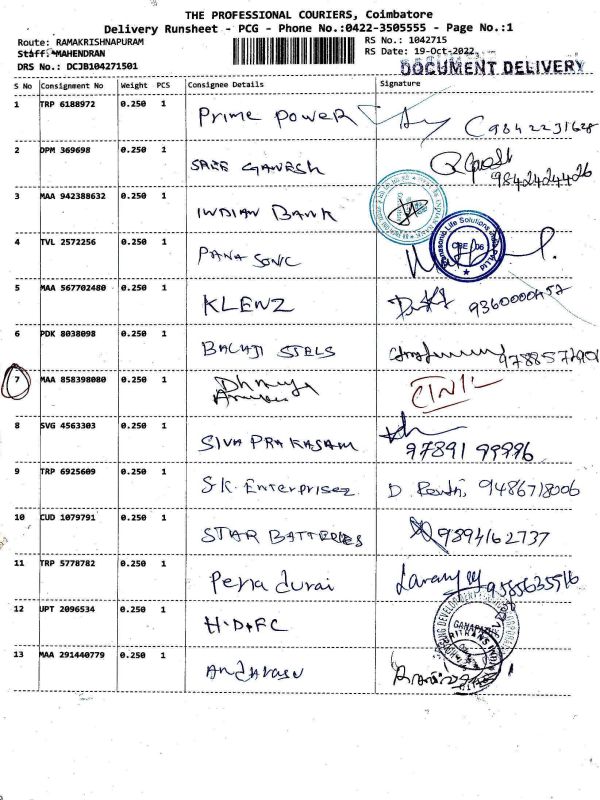 THE PROFESSIONAL COURIERS, Coimbatore
Delivery Runsheet - PCG - Phone No.:0422-3505555 - Page No.:1
Route: RAMAKRISHNAPURAM RS No.: 1042715
Staff: MAHENDRAN RS Date: 19-Oct-2022
DRS No.: DCJB104271501 DOCUMENT DELIVERY
S No Consignment No Weight PCS Consignee Details Signature
1 TRP 6188972 0.250 1 Prime Power 9842231628
2 DPM 369698 0.250 1 SREE GANESH 9842424426
3 MAA 942388632 0.250 1 INDIAN BANK
4 TVL 2572256 0.250 1 PANA SONIC Panasonic Life Solutions CBE 06
5 MAA 567702480 0.250 1 KLENZ 9360000457
6 PDK 8038098 0.250 1 BALAJI STELS
7 MAA 858398080 0.250 1
8 SVG 4563303 0.250 1 SIVA PRAKASAM 97891 99996
9 TRP 6925609 0.250 1 S.K. Enterprises 9486718006
10 CUD 1079791 0.250 1 STAR BATTERIES 9894162737
11 TRP 5778782 0.250 1 Peria durai 9585635516
12 UPT 2096534 0.250 1 H.D.F.C
13 MAA 291440779 0.250 1